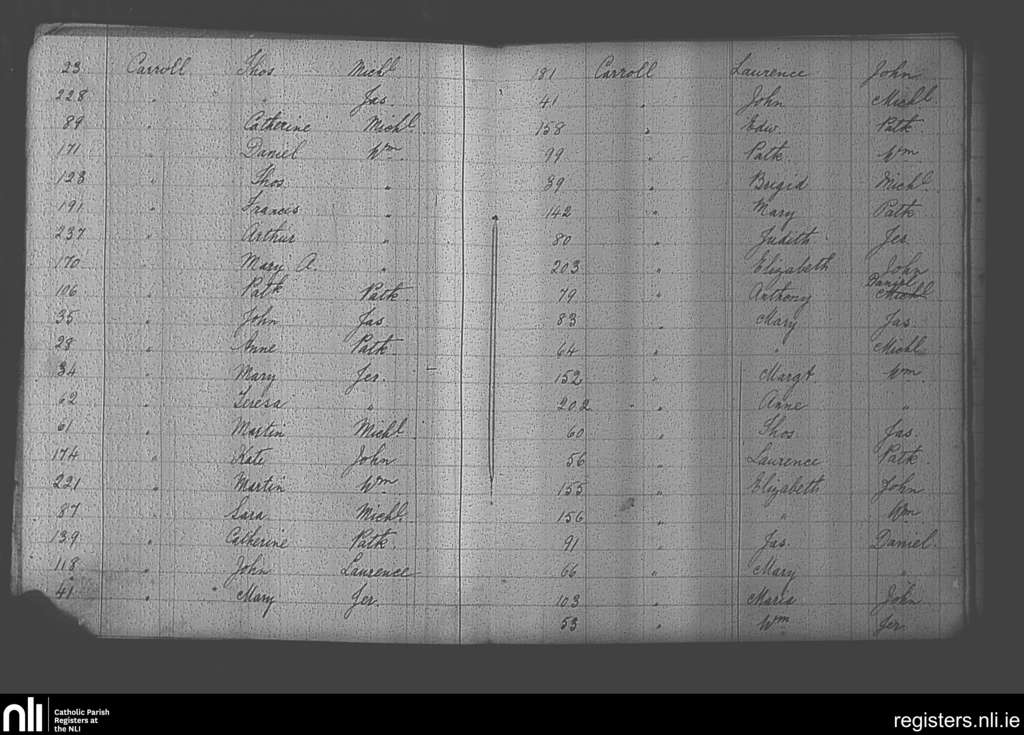 23 Carroll Thos Michl
228 " " Jas.
89 " Catherine Michl
171 " Daniel Wm
123 " Thos "
191 " Francis "
237 " Arthur "
170 " Mary A. "
106 " Patk Patk
35 " John Jas
28 " Anne Patk.
34 " Mary Jer.
62 " Teresa "
61 " Martin Michl
174 " Kate John
221 " Martin Wm
87 " Sara Michl.
139 " Catherine Patk.
118 " John Laurence
41 " Mary Jer.
181 Carroll Laurence John
41 " John Michl
158 " Edw. Patk
99 " Patk. Wm
39 " Brigid Michl
142 " Mary Patk
80 " Judith Jer
203 " Elizabeth John
79 " Anthony Daniel Michl
83 " Mary Jas
64 " " Michl
152 " Margt. Wm
202 " Anne "
60 " Thos Jas.
56 " Laurence Patk
155 " Elizabeth John
156 " " Wm
91 " Jas Daniel.
66 " Mary "
103 " Maria John
53 " Wm Jer
nli Catholic Parish
Registers at
the NLI
registers.nli.ie